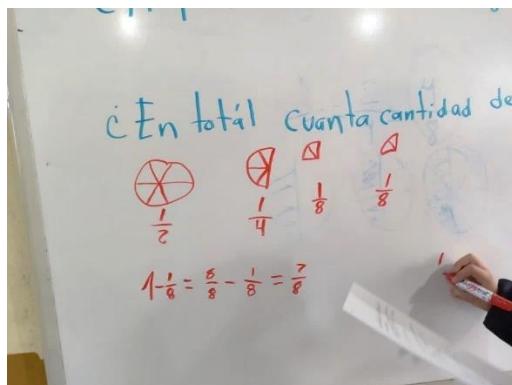 ¿En totál cuanta cantidad de
1/2 1/4 1/8 1/8
1-1/8 = 8/8 - 1/8 = 7/8